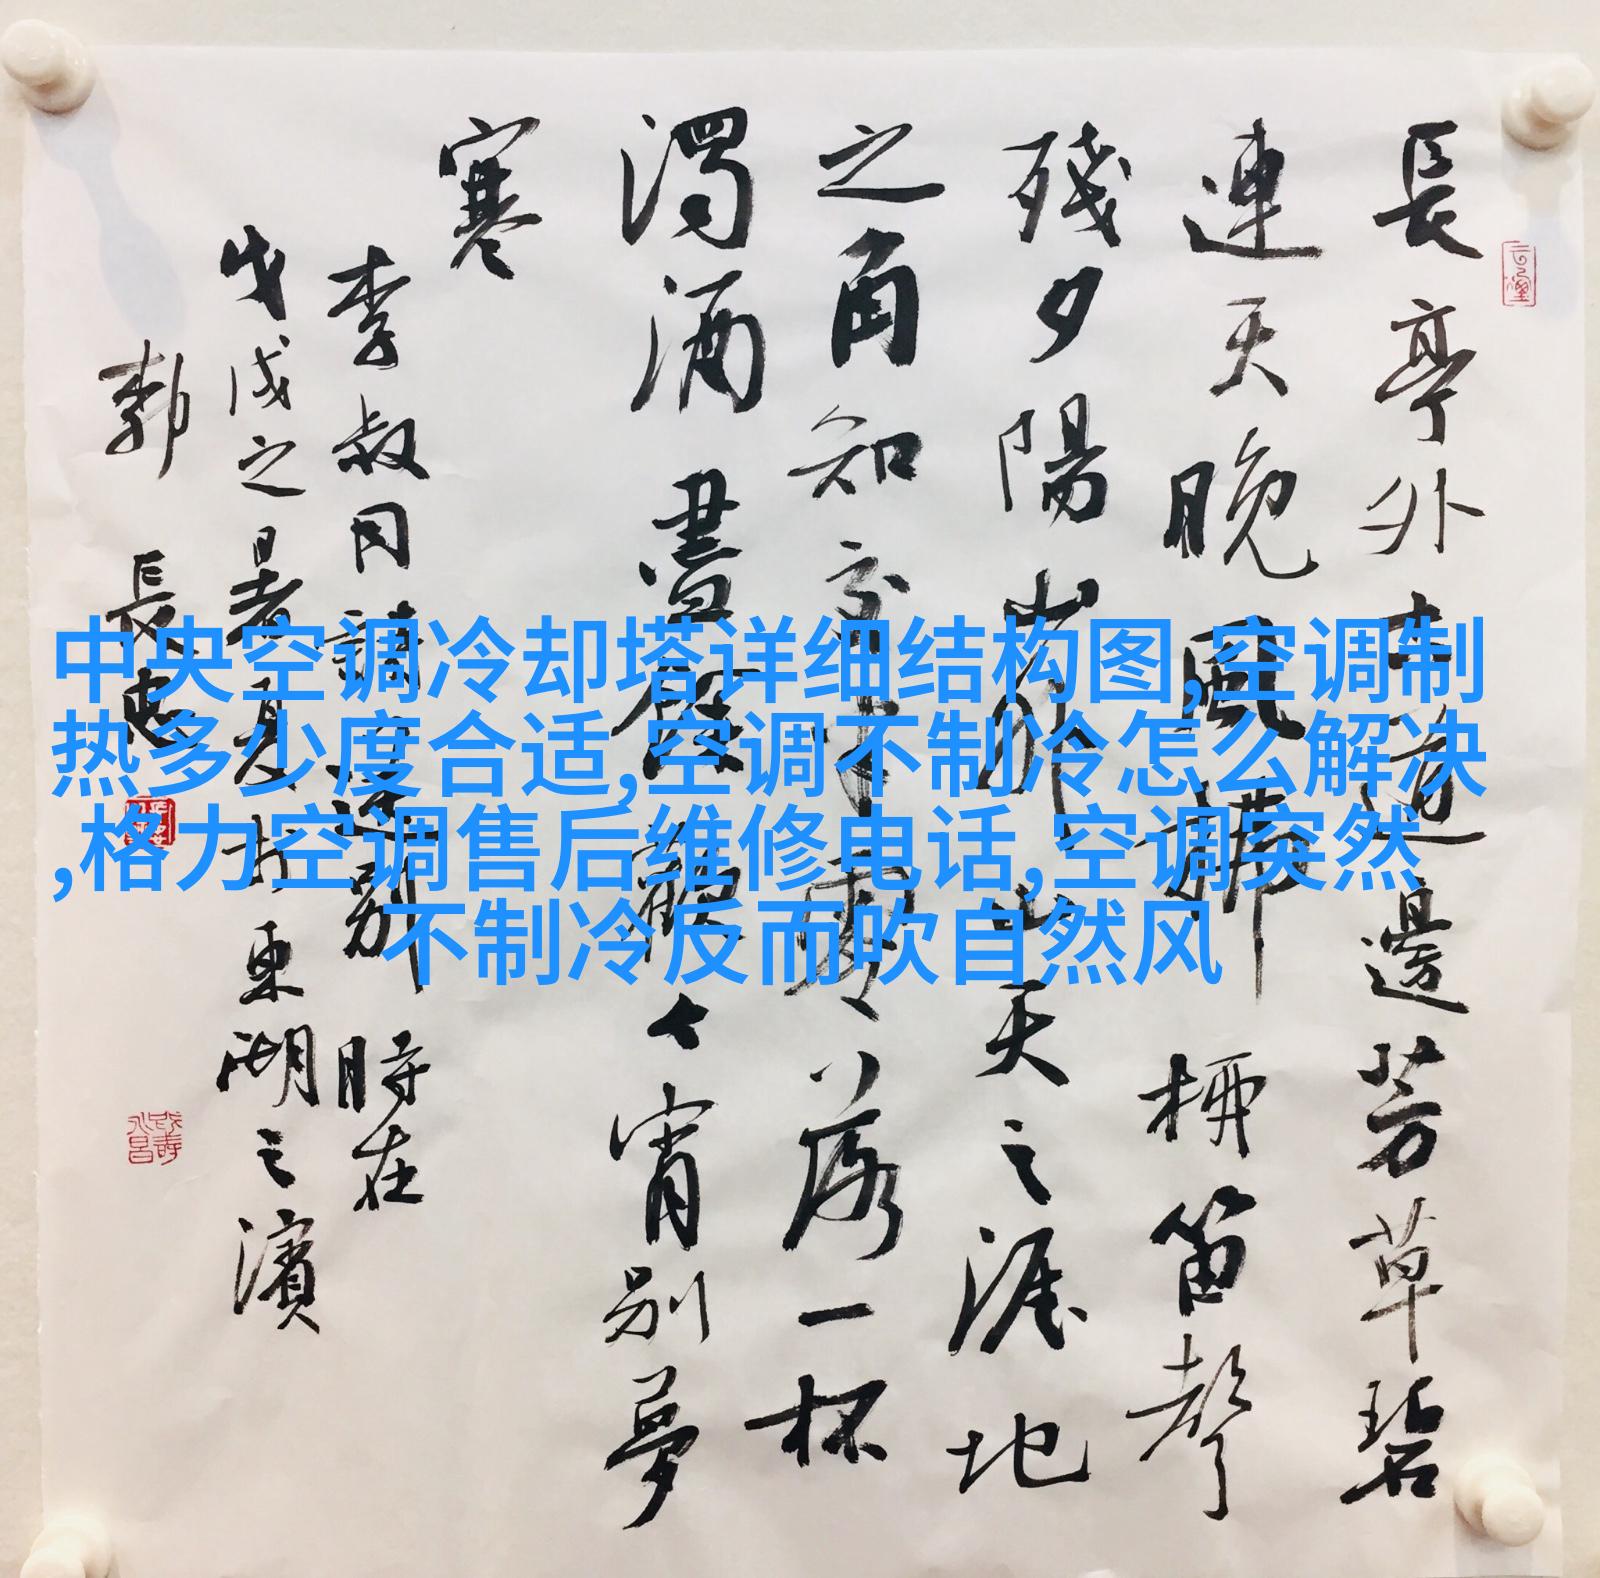 長亭外古道邊芳草碧
連天晚風拂柳笛聲
殘夕陽山外山天之涯地
之角知交半零落一杯
濁酒盡餘歡今宵別夢
寒
李叔同詩送別 時在
戊戌之暑夏於東湖之濱
長
中央空调冷却塔详细结构图,空调制
热多少度合适,空调不制冷怎么解决
,格力空调售后维修电话,空调突然
不制冷反而吹自然风